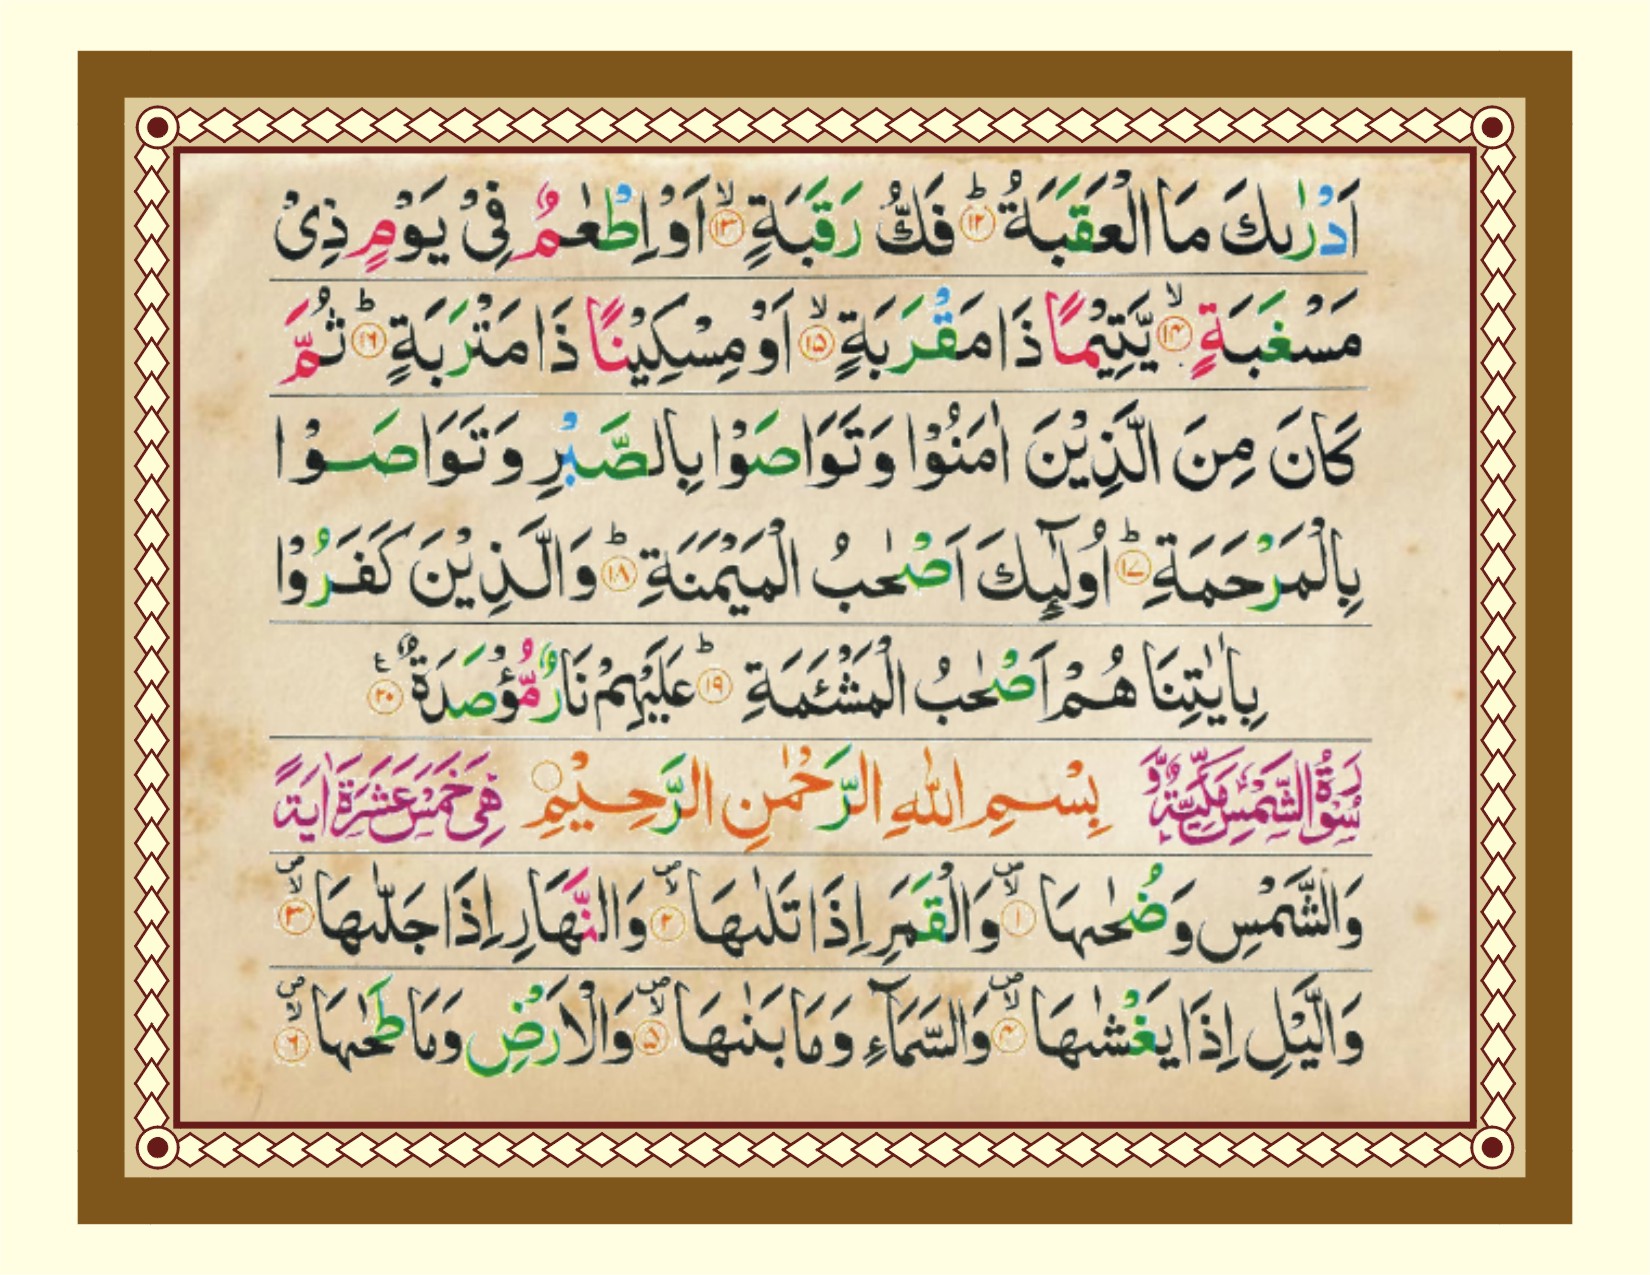 اَدْرٰىكَ مَا الْعَقَبَةُ ؕ﴿۱۲﴾ فَكُّ رَقَبَةٍ ۙ﴿۱۳﴾ اَوْ اِطْعٰمٌ فِیْ یَوْمٍ ذِیْ
مَسْغَبَةٍ ۙ﴿۱۴﴾ یَّتِیْمًا ذَا مَقْرَبَةٍ ۙ﴿۱۵﴾ اَوْ مِسْكِیْنًا ذَا مَتْرَبَةٍ ؕ﴿۱۶﴾ ثُمَّ
كَانَ مِنَ الَّذِیْنَ اٰمَنُوْا وَ تَوَاصَوْا بِالصَّبْرِ وَ تَوَاصَوْا
بِالْمَرْحَمَةِ ؕ﴿۱۷﴾ اُولٰٓىِٕكَ اَصْحٰبُ الْمَیْمَنَةِ ؕ﴿۱۸﴾ وَ الَّذِیْنَ كَفَرُوْا
بِاٰیٰتِنَا هُمْ اَصْحٰبُ الْمَشْـَٔمَةِ ؕ﴿۱۹﴾ عَلَیْهِمْ نَارٌ مُّؤْصَدَةٌ ۠﴿۲۰﴾
سُوْرَةُ الشَّمْسِ مَكِّیَّةٌ وَّ بِسْمِ اللّٰهِ الرَّحْمٰنِ الرَّحِیْمِ هِیَ خَمْسَ عَشَرَةَ اٰیَةً
وَ الشَّمْسِ وَ ضُحٰىهَا ۪ۙ﴿۱﴾ وَ الْقَمَرِ اِذَا تَلٰىهَا ۪ۙ﴿۲﴾ وَ النَّهَارِ اِذَا جَلّٰىهَا ۪ۙ﴿۳﴾
وَ الَّیْلِ اِذَا یَغْشٰىهَا ۪ۙ﴿۴﴾ وَ السَّمَآءِ وَ مَا بَنٰىهَا ۪ۙ﴿۵﴾ وَ الْاَرْضِ وَ مَا طَحٰىهَا ۪ۙ﴿۶﴾